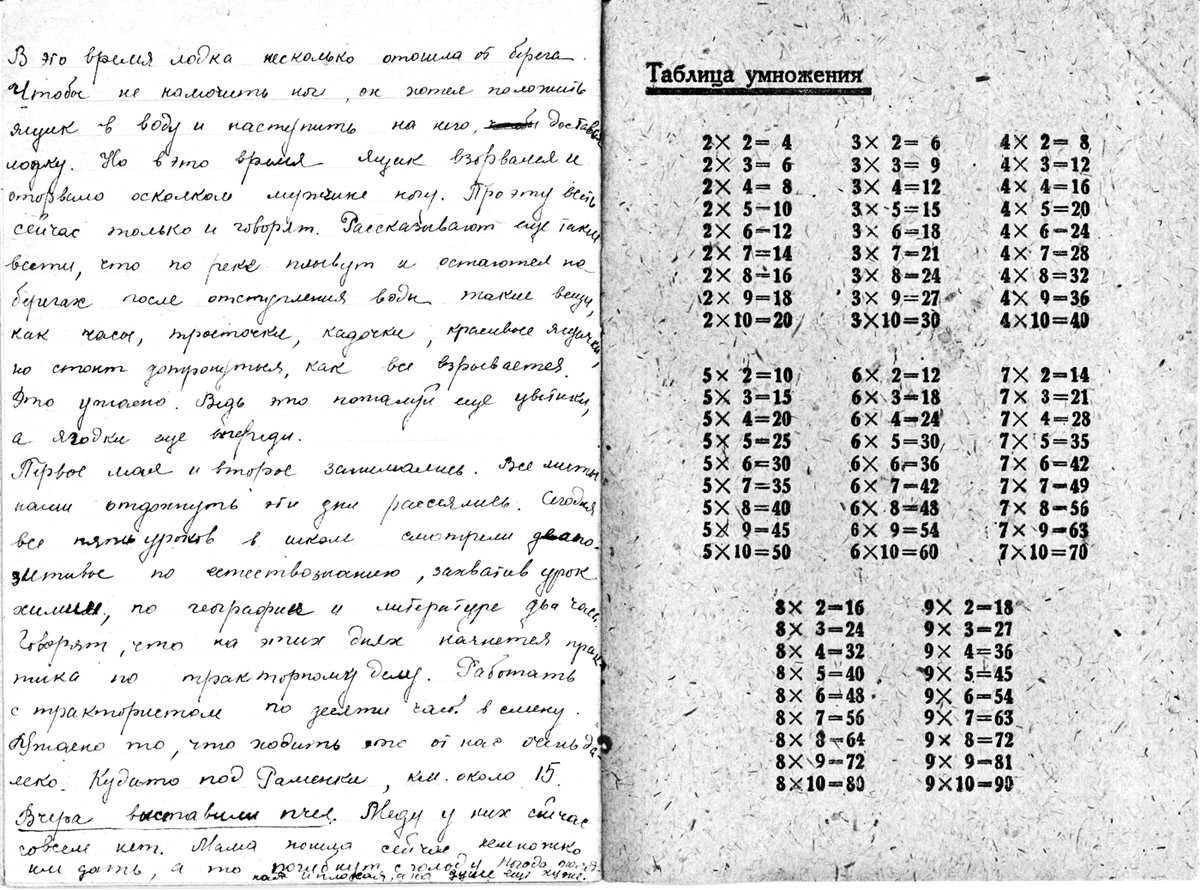 В это время лодка несколько отошла от берега.
Чтобы не намочить ног, он хотел положить
ящик в воду и наступить на него,
лодку. Но в это время ящик взорвался и
оторвало осколком мужчине ногу. Про эту весть
сейчас только и говорят. Рассказывают еще такие
вести, что по реке плывут и остаются на
берегах после отступления воды такие вещи,
как часы, тросточки, кадочки, красивые ящички,
но стоит дотронуться, как все взрывается.
Это ужасно. Ведь это пожалуй еще цветики,
а ягодки еще впереди.
Первое мая и второе занимались. Все мечты
нами отдохнуть эти дни рассеялись. Сегодня
все пять уроков в школе смотрели диапо-
зитивы по естествознанию, захватив урок
химии, по географии и литературе два часа.
Говорят, что на этих днях начнется прак
тика по тракторному делу. Работать
с трактористом по десяти часов в смену.
Ужасно то, что ходить это от нас очень да
леко. Куда то под Раменки, км. около 15.
Вчера выставили пчел. Меду у них сейчас
совсем нет. Мама понща сейчас немножко
им дать, а то погибнут с голоду. Погода
ная и плохая, а на душе еще хуже.
Таблица умножения
2× 2= 4 3× 2= 6 4× 2= 8
2× 3= 6 3× 3= 9 4× 3=12
2× 4= 8 3× 4=12 4× 4=16
2× 5=10 3× 5=15 4× 5=20
2× 6=12 3× 6=18 4× 6=24
2× 7=14 3× 7=21 4× 7=28
2× 8=16 3× 8=24 4× 8=32
2× 9=18 3× 9=27 4× 9=36
2×10=20 3×10=30 4×10=40
5× 2=10 6× 2=12 7× 2=14
5× 3=15 6× 3=18 7× 3=21
5× 4=20 6× 4=24 7× 4=28
5× 5=25 6× 5=30 7× 5=35
5× 6=30 6× 6=36 7× 6=42
5× 7=35 6× 7=42 7× 7=49
5× 8=40 6× 8=48 7× 8=56
5× 9=45 6× 9=54 7× 9=63
5×10=50 6×10=60 7×10=70
8× 2=16 9× 2=18
8× 3=24 9× 3=27
8× 4=32 9× 4=36
8× 5=40 9× 5=45
8× 6=48 9× 6=54
8× 7=56 9× 7=63
8× 8=64 9× 8=72
8× 9=72 9× 9=81
8×10=80 9×10=90